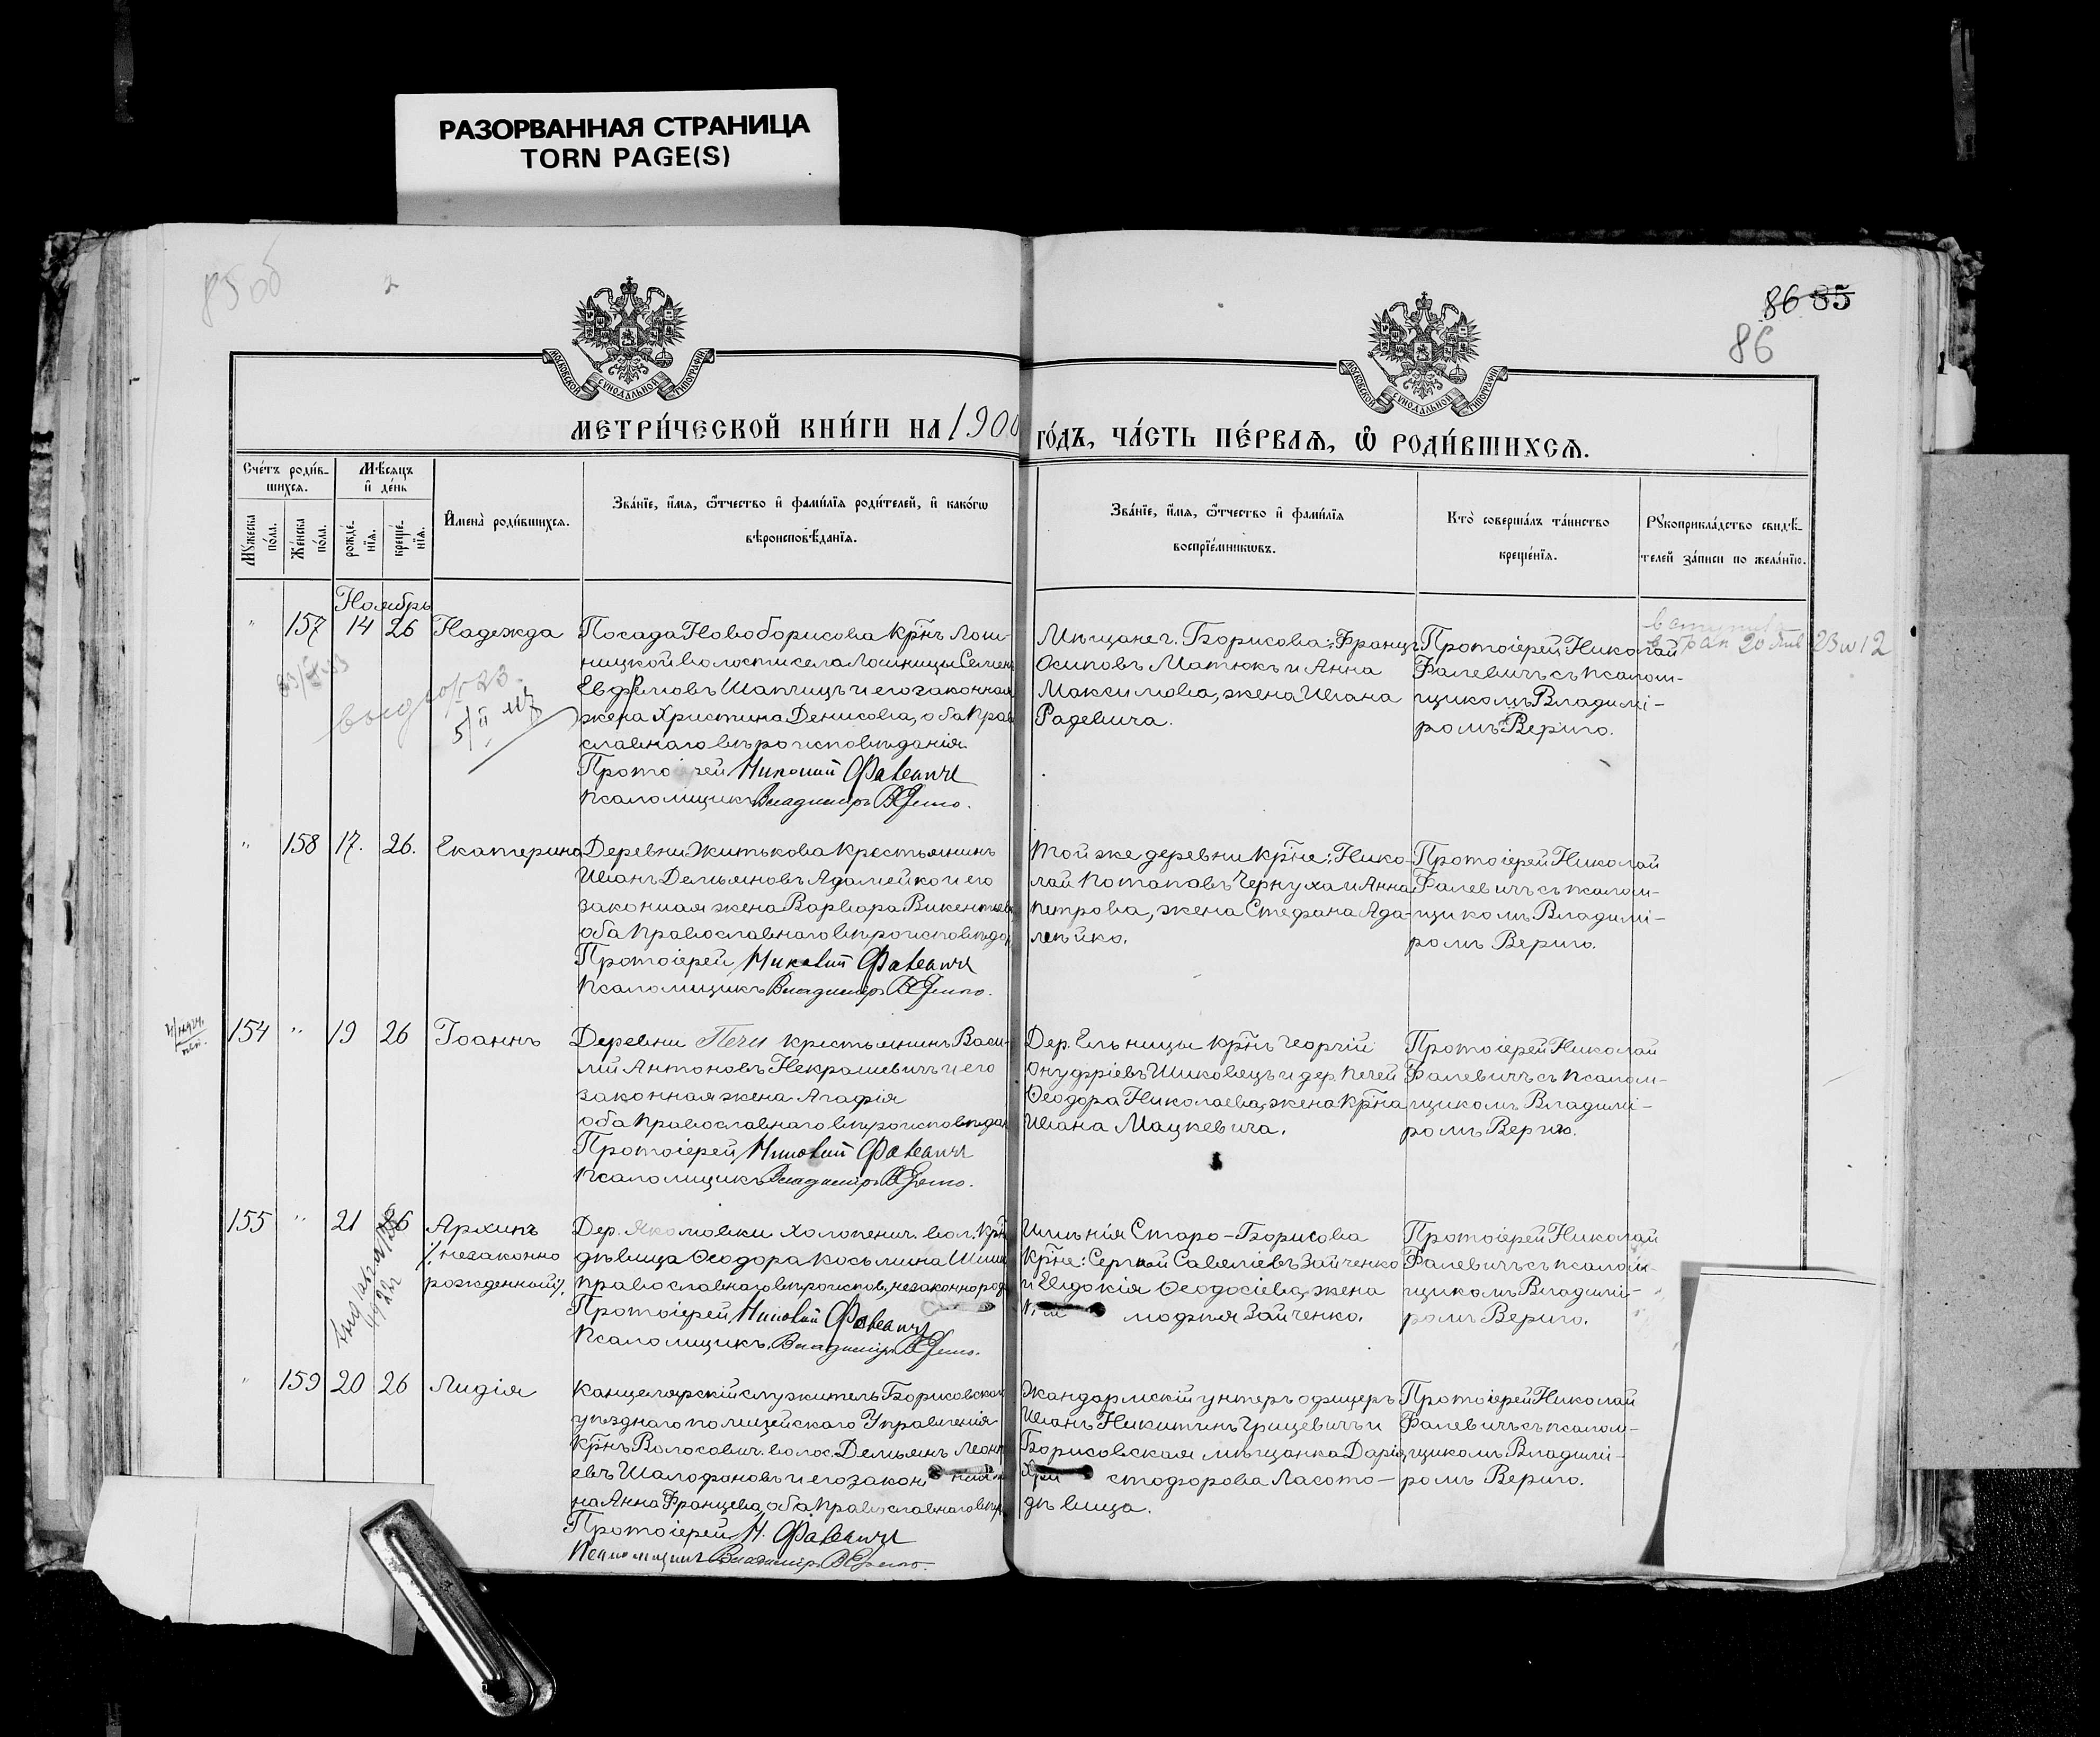 РАЗОРВАННАЯ СТРАНИЦА
TORN PAGE(S)
85 об
86 85
86
МОСКОВСКОЙ СѴНОДАЛЬНОЙ ТИПОГРАФІИ
МОСКОВСКОЙ СѴНОДАЛЬНОЙ ТИПОГРАФІИ
МЕТРИ́ЧЕСКОЙ КНИ́ГИ НА 1900
ГО́ДЪ, ЧА́СТЬ ПЕ́РВАѦ, Ѡ҆ РОДИ́ВШИХСѦ.
Сче́тъ роди́в-
шихсѧ.
Мꙋ́жеска по́ла.
Же́нска по́ла.
Мѣ́сѧцъ
и҆ де́нь
рожде́-
нїѧ.
креще́-
нїѧ.
И҆мена̀ роди́вшихсѧ.
Зва́нїе, и҆́мѧ, ѻ҆́тчество и҆ фами́лїѧ роди́телей, и҆ како́гѡ
вѣроисповѣ́данїѧ.
Зва́нїе, и҆́мѧ, ѻ҆́тчество и҆ фами́лїѧ
воспрїе́мникѡвъ.
Кто̀ соверша́лъ та́инство
креще́нїѧ.
Рꙋкоприкла́дство свидѣ́-
телей за́писи по жела́нїю.
Ноябрь
" 157 14 26 Надежда
Посада Новоборисова кр͞нъ Лош-
ницкой волости села Лошницы Семенъ
Евфимовъ Шапчицъ и его законная
жена Христина Денисова, оба прав
славнаго вѣроисповѣданія.
Протоіерей Николай Фалевичъ
Псаломщикъ Владиміръ Вериго.
Мѣщане г. Борисова: Францъ
Осиповъ Матюкъ и Анна
Максимова, жена Ивана
Радевича.
Протоіерей Николай
Фалевичъ съ псалом-
щикомъ Владимі-
ромъ Вериго.
" 158 17. 26. Екатерина
Деревни Житькова крестьянинъ
Иванъ Демьяновъ Адамейко и его
законная жена Варвара Викентьев
оба православнаго вѣроисповѣда
Протоіерей Николай Фалевичъ
Псаломщикъ Владиміръ Вериго.
Той же деревни кр͞не: Нико-
лай Потаповъ Чернуха и Анна
Петрова, жена Стефана Ада-
мейко.
Протоіерей Николай
Фалевичъ съ псалом-
щикомъ Владимі-
ромъ Вериго.
154 " 19 26 Іоаннъ
Деревни Печи крестьянинъ Васи-
лій Антоновъ Некрашевичъ и его
законная жена Агафія
оба православнаго вѣроисповѣдан
Протоіерей Николай Фалевичъ
Псаломщикъ Владиміръ Вериго.
Дер. Ельницы кр͞нъ Георгій
Онуфріевъ Шиковецъ и дер. Печей
Ѳеодора Николаева, жена кр͞на
Ивана Мацкевича.
Протоіерей Николай
Фалевичъ съ псалом-
щикомъ Владимі-
ромъ Вериго.
155 " 21 26 Архипъ
незаконно
рожденный
холопенич. вол. кр͞н
дѣвица Ѳеодора Косьмина
православнаго вѣроисповѣ, незаконнорож
Протоіерей Николай Фалевичъ
Псаломщикъ Владиміръ Вериго.
Имѣнія Старо-Борисова
кр͞не: Сергѣй Савеліевъ Зайченко
и Евдокія Ѳеодосіева, жена
Зайченко.
Протоіерей Николай
Фалевичъ съ псалом-
щикомъ Владимі-
ромъ Вериго.
" 159 20 26 Лидія
Канцелярскій служитель Борисовскаг
уѣзднаго полицейскаго Управленія
кр͞нъ Волосович. волос. Демьянъ Леонт
евъ Шалофоновъ и его закон
на Анна Францева, оба православнаго вѣр
Протоіерей Н. Фалевичъ
Псаломщикъ Владиміръ Вериго.
Жандармскій унтеръ офицеръ
Иванъ Никитинъ Грицевичъ и
Борисовская мѣщанка Дарія
Хри стофорова Ласото-
дѣвица.
Протоіерей Николай
Фалевичъ съ псалом-
щикомъ Владимі-
ромъ Вериго.